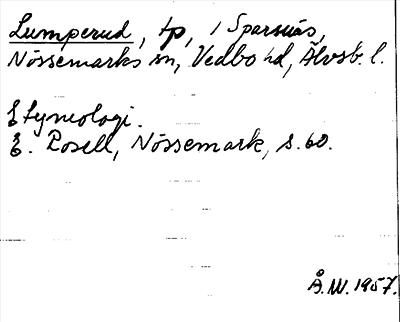 Lumperud, tp, i Sparsnäs,
Nössemarks sn, Vedbo hd, Älvsb. l.
Etymologi.
E. Rosell, Nössemark, s. 60.
Å. W. 1957.